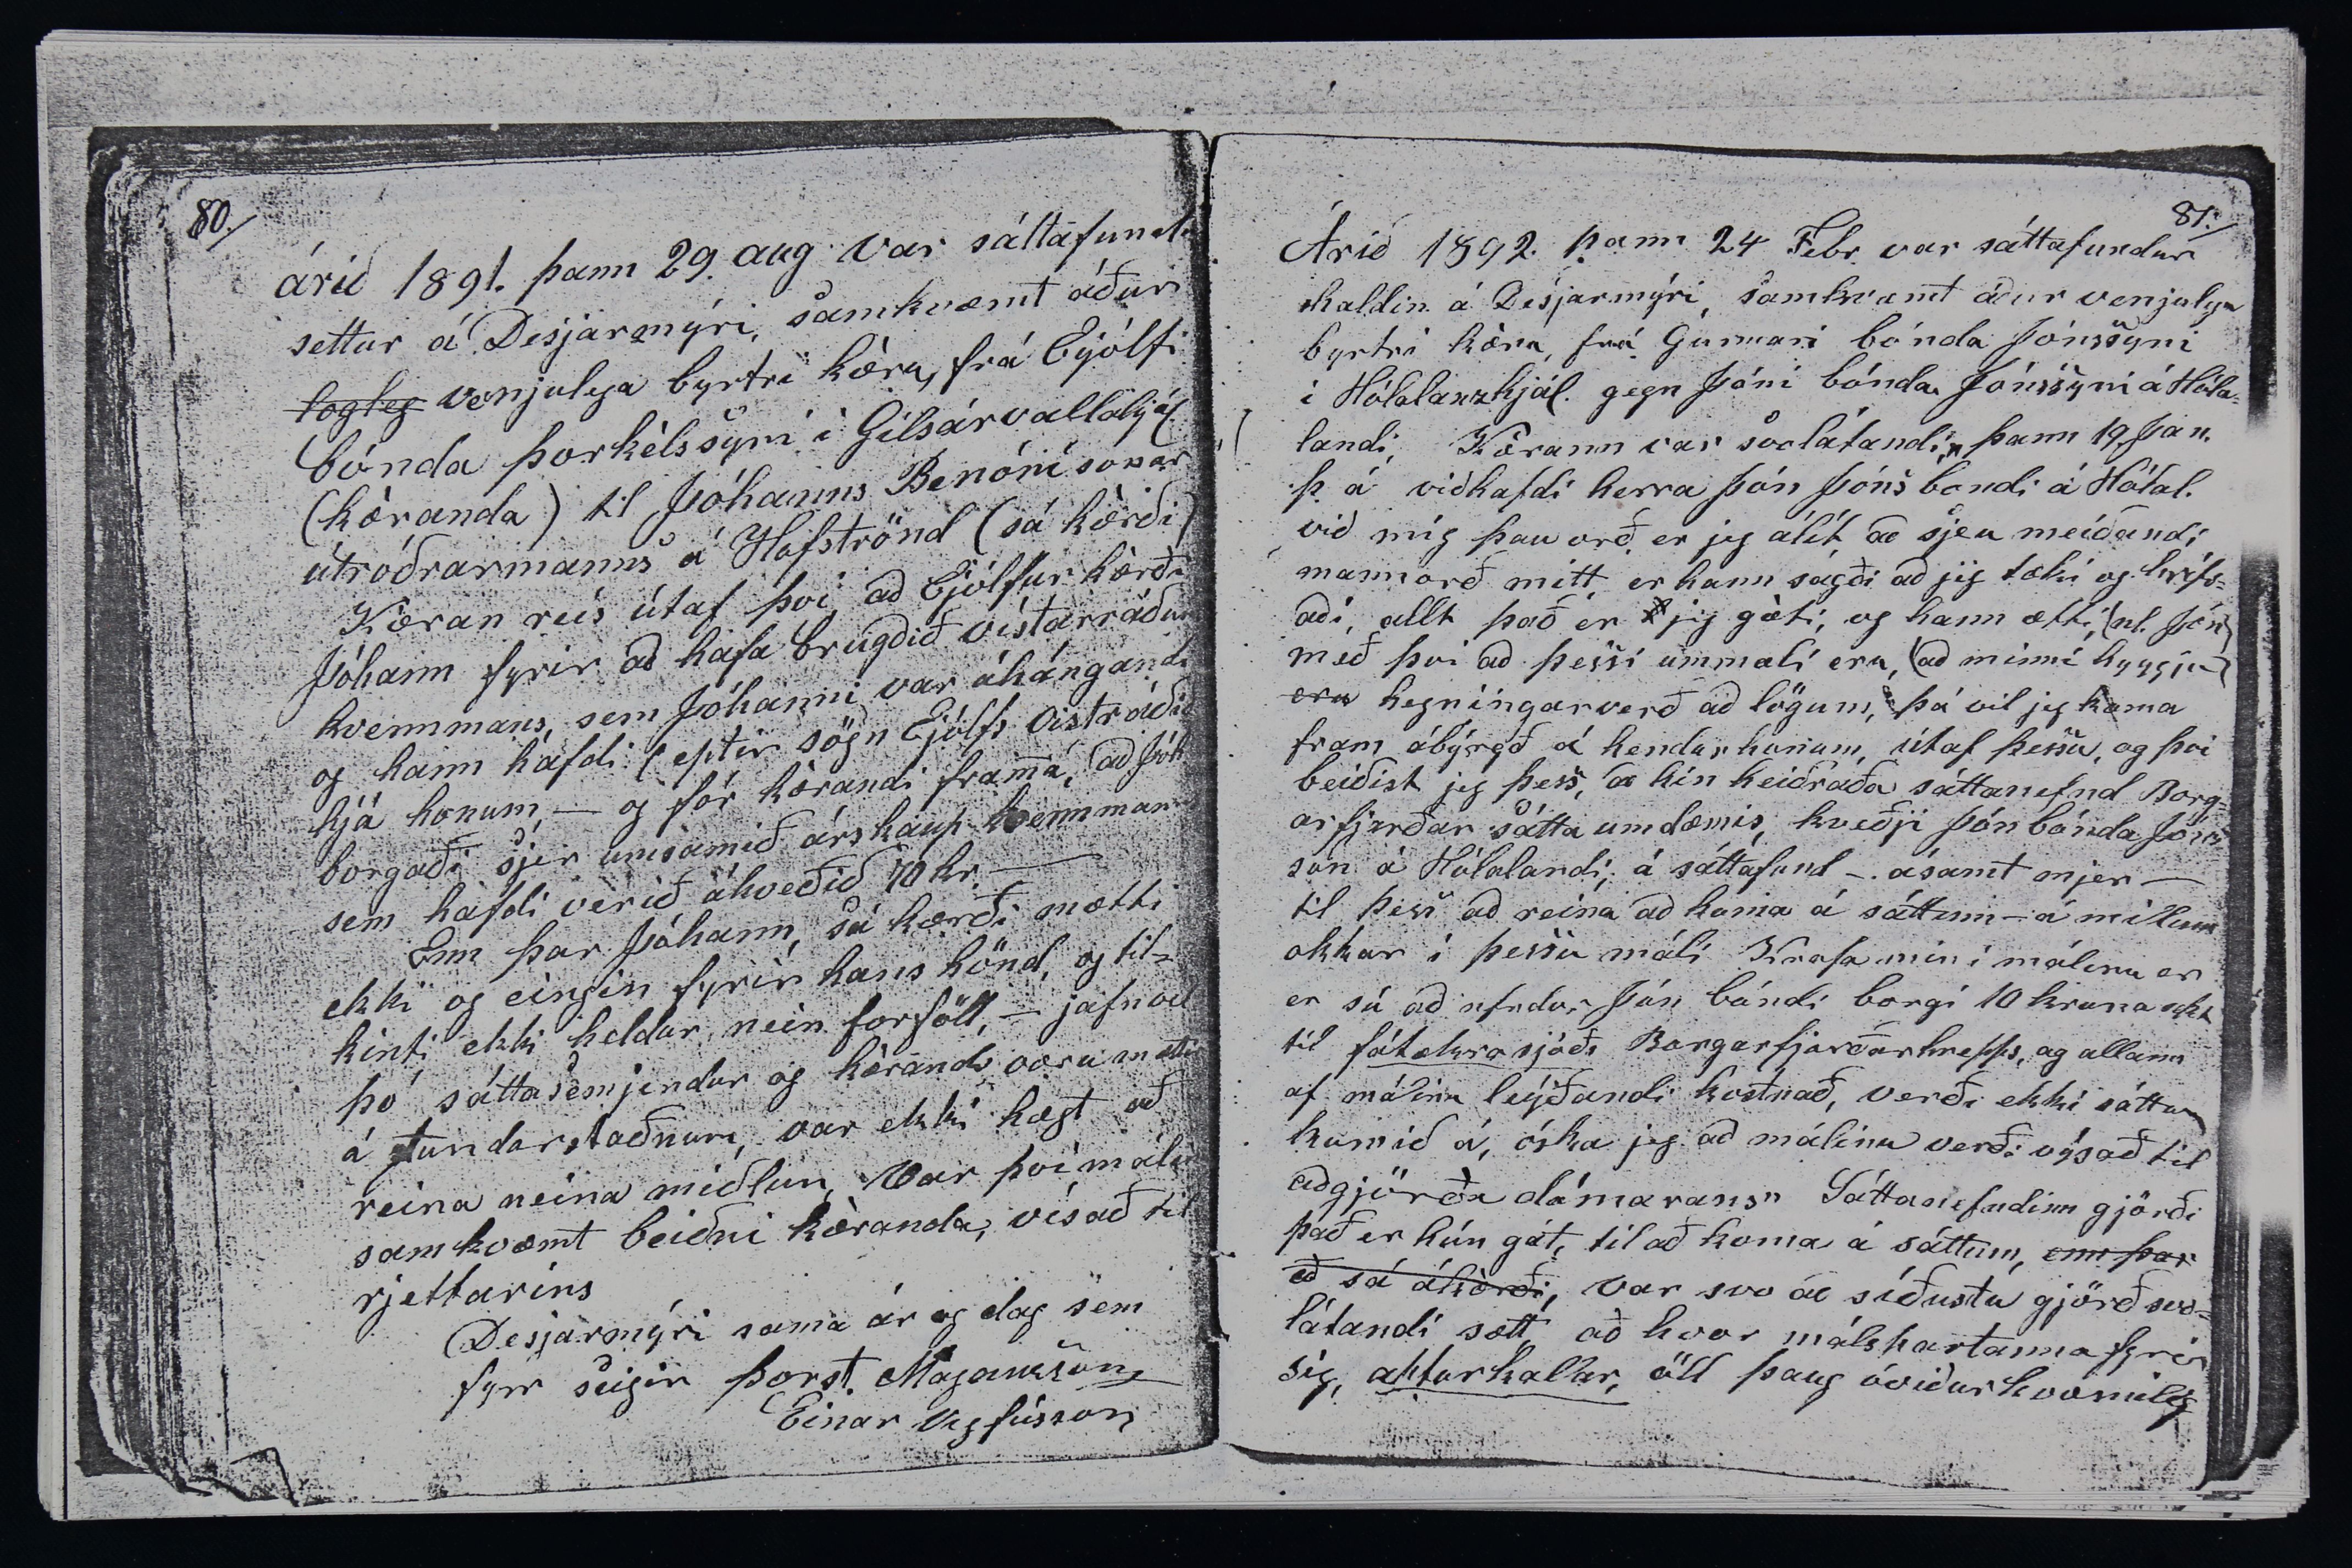 80.
árið 1891. þann 29. aug var sáttafund
settur á Desjarmýri, samkvæmt áður
logleg venjulega byrtri kæru, frá Eyólfi
bónda þorkelssyni í Gilsárvallahjál
(kæranda) til Jóhanns Benónísonar
útróðrarmanns á Hofströnd (sá kærði)
Kæran reis útaf því, að Ejólfur kærði
Jóhann fyrir að hafa brugðið vistarráðum
kvennmans, sem Jóhanni var áhángandi
og hann hafdi (eptir sögn Ejólfs vistráðið
hjá honum, — og fór kærandi frammá, að Jóh
borgaði sjer umsamið árskaup kvennmans
sem hafdi verið ákveðið 70 kr. —
Enn þar Jóhann, sá kærði mætti
ekki og eingin fyrir hans hönd, og til-
kinti ekki heldur nein forföll, — jafnvel
þó sáttasemjendur og kærandi væru mætti
á fundarstaðnum, var ekki hægt að
reina neina miðlun, var því máli
samkvæmt beiðni kæranda, vísað til
rjettarins
Desjarmýri sama ár og dag sem
fyrr seigir þorst. Magnusson
Einar Vigfússon
81.
Árið 1892. þann 24 Febr var sáttafundur
haldin á Desjarmýri, samkvæmt áður venjulega
byrtri kæru, frá Gunnari bónda Jónssyni
í Hólalanzhjál. gegn Jóni bónda Jónssyni á Hóla-
landi, Kærann var svolátandi, „þann 19 Jan.
þ. á viðhafdi herra Jón Jóns bondi á Hólal.
við mig þau orð, er jeg álít að sjeu meiðandi
mannorð mitt, er hann sagði að jeg tæki og hrifs-
aði, allt það er jeg gæti, og hann ætti, (nl. Jón)
með því að þessi ummæli eru, (að minni hyggju)
eru hegníngarverð að lögum, þá vil jeg koma
fram ábyrgð á hendur honum, útaf þessu, og því
beiðist jeg þess, að hin heiðraða sáttanefnd Borg-
arfjarðar sátta umdæmis, kveðji Jón bónda Jóns
son á Hólalandi, á sáttafund — ásamt mjer —
til þess að reina að koma á sáttum — á millum
okkar í þessu máli Krafa mín í málinu er
er sú að nfndur Jón bóndi borgi 10 krona sekt
til fátækra sjóðs Borgarfjarðarhrepps, og allann
af málinu leyðandi kostnað, verði ekki sáttum
komið á, óska jeg að málinu verði vysað til
aðgjörða dómarans" Sáttanefndinn gjörði
það er hún gát, til að koma á sáttum, enn þar
eð sá ákærði, var svo að síðustu gjörð svo-
látandi sætt, að hvor málspartanna fyrir
sig, apturkallar, öll þaug óviðurkvæmileg